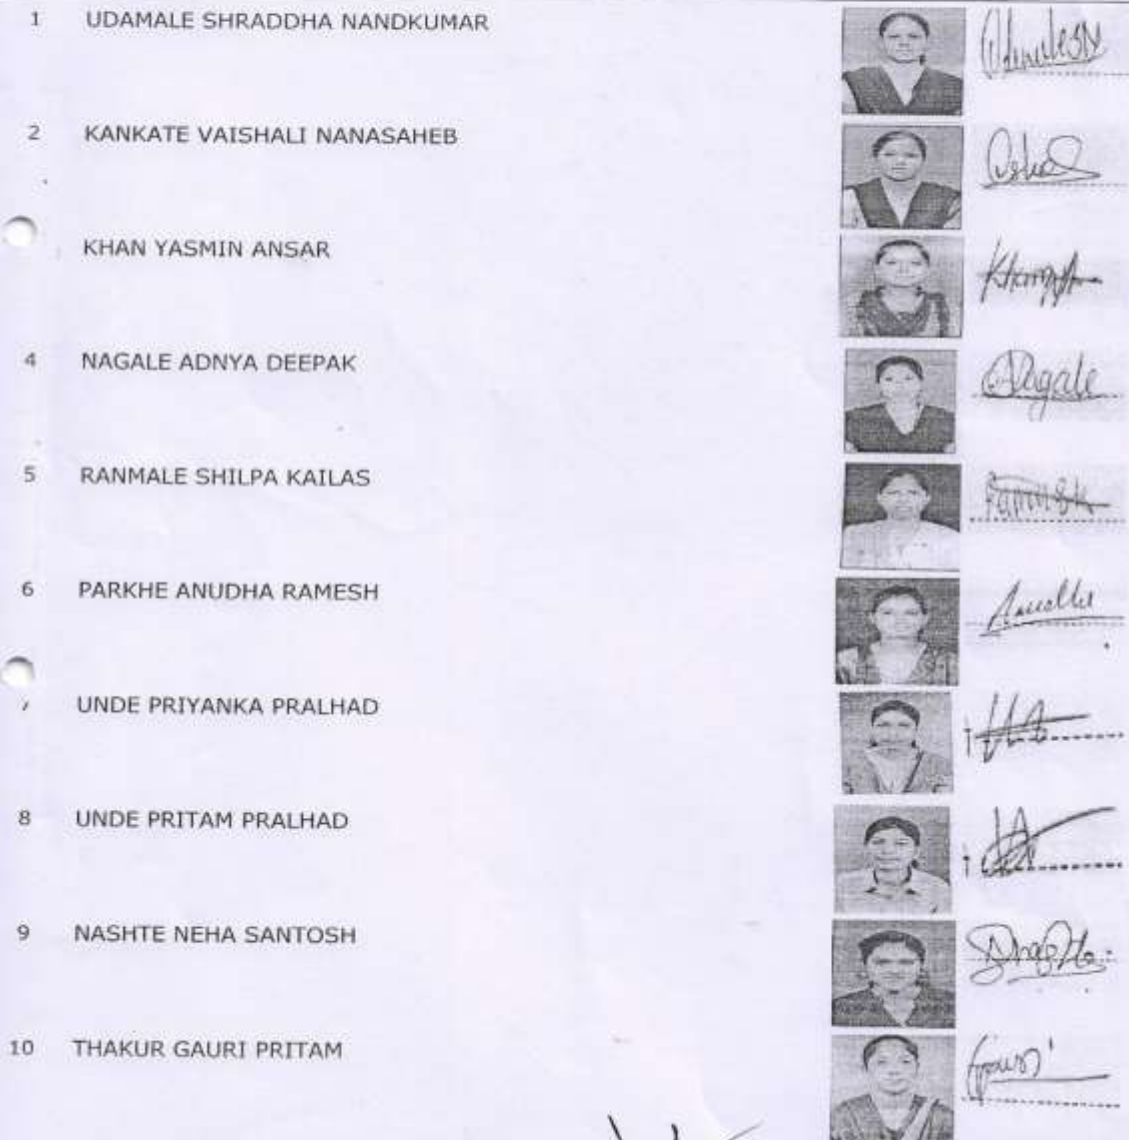 1 UDAMALE SHRADDHA NANDKUMAR
2 KANKATE VAISHALI NANASAHEB
KHAN YASMIN ANSAR
4 NAGALE ADNYA DEEPAK Nagale
5 RANMALE SHILPA KAILAS
6 PARKHE ANUDHA RAMESH
UNDE PRIYANKA PRALHAD
8 UNDE PRITAM PRALHAD
9 NASHTE NEHA SANTOSH
10 THAKUR GAURI PRITAM